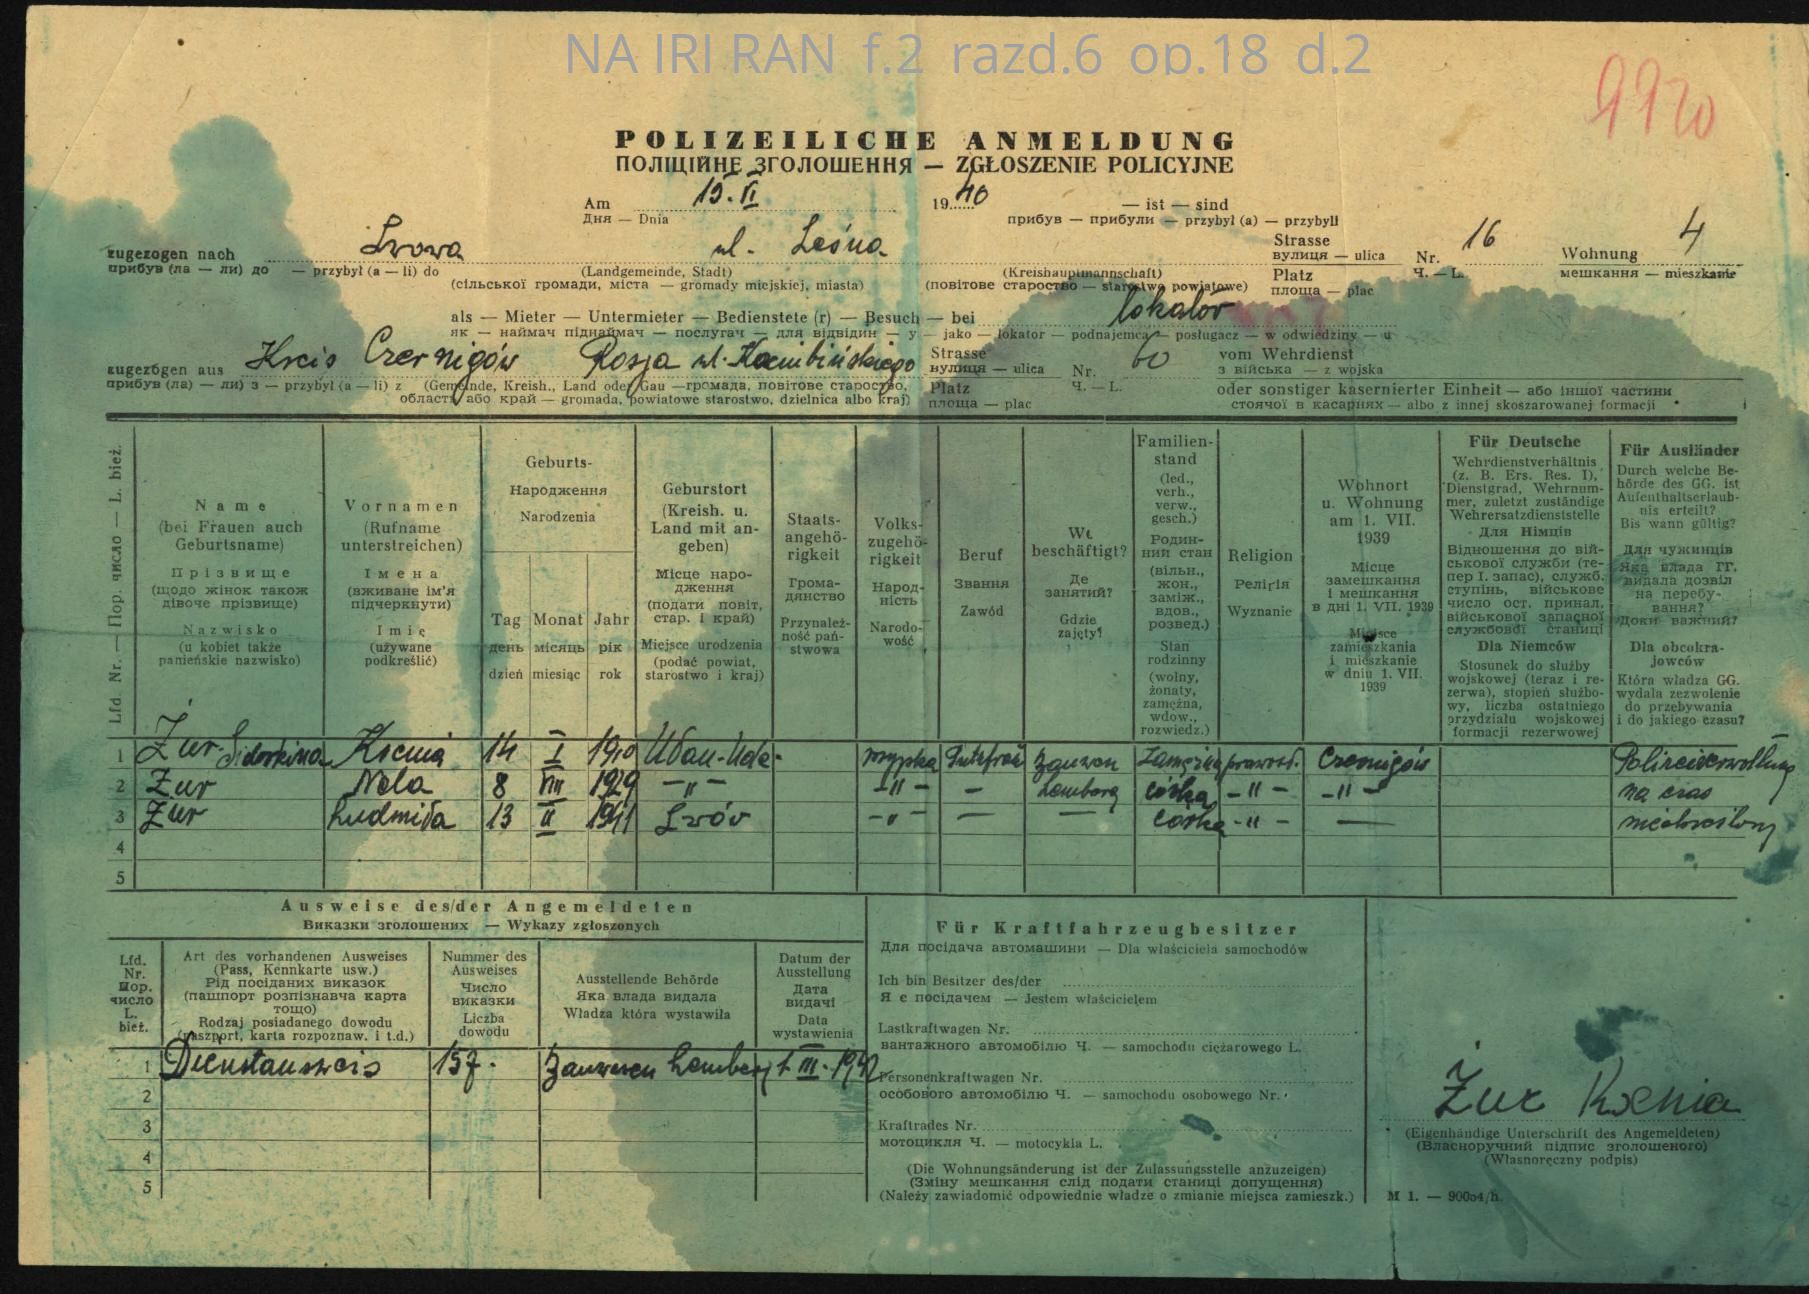 NA IRI RAN f.2 razd.6 op.18 d.2
9920
POLIZEILICHE ANMELDUNG
ПОЛІЦІЙНЕ ЗГОЛОШЕННЯ — ZGŁOSZENIE POLICYJNE
Am 15. VI 1940 — ist — sind
Дня — Dnia прибув — прибули — przybył (a) — przybyli
zugezogen nach Lwowa ul. Leśna Strasse Nr. 16 Wohnung 4
вулиця — ulica
прибув (ла — ли) до — przybył (a — li) do (Landgemeinde, Stadt) (Kreishauptmannschaft) Platz Ч. — L. мешкання — mieszkanie
(сільської громади, міста — gromady miejskiej, miasta) (повітове староство — starostwo powiatowe) площа — plac
als — Mieter — Untermieter — Bedienstete (r) — Besuch — bei lokator
як — наймач піднаймач — послугач — для відвідин — у — jako — lokator — podnajemca — posługacz — w odwiedziny — u
zugezogen aus Kreis Czernigów Rosja ul. Strasse Nr. 60 vom Wehrdienst
вулиця — ulica з війська — z wojska
прибув (ла) — ли) з — przybył (a — li) z (Gemeinde, Kreish., Land oder Gau — громада, повітове староство, Platz Ч. — L. oder sonstiger kasernierter Einheit — або іншої частини
область або край — gromada, powiatowe starostwo, dzielnica albo kraj) площа — plac стоячої в касарнях — albo z innej skoszarowanej formacji
Lfd. Nr. — Пор. число — L. bież.
Name
(bei Frauen auch
Geburtsname)
Прізвище
(щодо жінок також
дівоче прізвище)
Nazwisko
(u kobiet także
panieńskie nazwisko)
Vornamen
(Rufname
unterstreichen)
Імена
(вживане ім'я
підчеркнути)
Imię
(używane
podkreślić)
Geburts-
Народження
Narodzenia
Tag Monat Jahr
день місяць рік
dzień miesiąc rok
Geburtsort
(Kreish. u.
Land mit an-
geben)
Місце наро-
дження
(подати повіт,
стар. і край)
Miejsce urodzenia
(podać powiat,
starostwo i kraj)
Staats-
angehö-
rigkeit
Грома-
дянство
Przynależ-
ność pań-
stwowa
Volks-
zugehö-
rigkeit
Народ-
ність
Narodo-
wość
Beruf
Звання
Zawód
Wo
beschäftigt?
Де
занятий?
Gdzie
zajęty?
Familien-
stand
(led.,
verh.,
verw.,
gesch.)
Родин-
ний стан
(вільн.,
жон.,
заміж.,
вдов.,
розвед.)
Stan
rodzinny
(wolny,
żonaty,
zamężna,
wdow.,
rozwiedz.)
Religion
Релігія
Wyznanie
Wohnort
u. Wohnung
am 1. VII.
1939
Місце
замешкання
і мешкання
в дні 1. VII. 1939
Miejsce
zamieszkania
i mieszkanie
w dniu 1. VII.
1939
Für Deutsche
Wehrdienstverhältnis
(z. B. Ers. Res. I),
Dienstgrad, Wehrnum-
mer, zuletzt zuständige
Wehrersatzdienststelle
Для Німців
Відношення до вій-
ськової служби (те-
пер І. запас), служб.
ступінь, військове
число ост. принал.
військової запасної
службової станиці
Dla Niemców
Stosunek do służby
wojskowej (teraz i re-
zerwa), stopień służbo-
wy, liczba ostatniego
przydziału wojskowej
formacji rezerwowej
Für Ausländer
Durch welche Be-
hörde des GG. ist
Aufenthaltserlaub-
nis erteilt?
Bis wann gültig?
Для чужинців
Яка влада ГГ.
видала дозвіл
на перебу-
вання?
Доки важний?
Dla obcokra-
jowców
Która władza GG.
wydala zezwolenie
do przebywania
i do jakiego czasu?
1 Żur-Sidorkina Ksenia 14 I 1910 Ułan-Ude rosyjska zamężna prawosł. Czernigów
2 Żur Nela 8 VIII 1929 —"— —"— — Lemberg córka —"— —"— na czas
3 Żur Ludmiła 13 II 1941 Lwów —"— — — córka —"— — nieokreślony
4
5
Ausweise des/der Angemeldeten
Виказки зголошених — Wykazy zgłoszonych
Lfd.
Nr.
Пор.
число
L.
bież.
Art des vorhandenen Ausweises
(Pass, Kennkarte usw.)
Рід посіданих виказок
(пашпорт розпізнавча карта
тощо)
Rodzaj posiadanego dowodu
(paszport, karta rozpoznaw. i t.d.)
Nummer des
Ausweises
Число
виказки
Liczba
dowodu
Ausstellende Behörde
Яка влада видала
Władza która wystawiła
Datum der
Ausstellung
Дата
видачі
Data
wystawienia
1 Dienstausweis 157. Lemberg 1. III. 1942
2
3
4
5
Für Kraftfahrzeugbesitzer
Для посідача автомашини — Dla właściciela samochodów
Ich bin Besitzer des/der
Я є посідачем — Jestem właścicielem
Lastkraftwagen Nr.
вантажного автомобілю Ч. — samochodu ciężarowego L.
Personenkraftwagen Nr.
особового автомобілю Ч. — samochodu osobowego Nr.
Kraftrades Nr.
мотоцикля Ч. — motocykla L.
(Die Wohnungsänderung ist der Zulassungsstelle anzuzeigen)
(Зміну мешкання слід подати станиці допущення)
(Należy zawiadomić odpowiednie władze o zmianie miejsca zamieszk.)
Żur Ksenia
(Eigenhändige Unterschrift des Angemeldeten)
(Власноручний підпис зголошеного)
(Własnoręczny podpis)
M 1. — 90004/h.